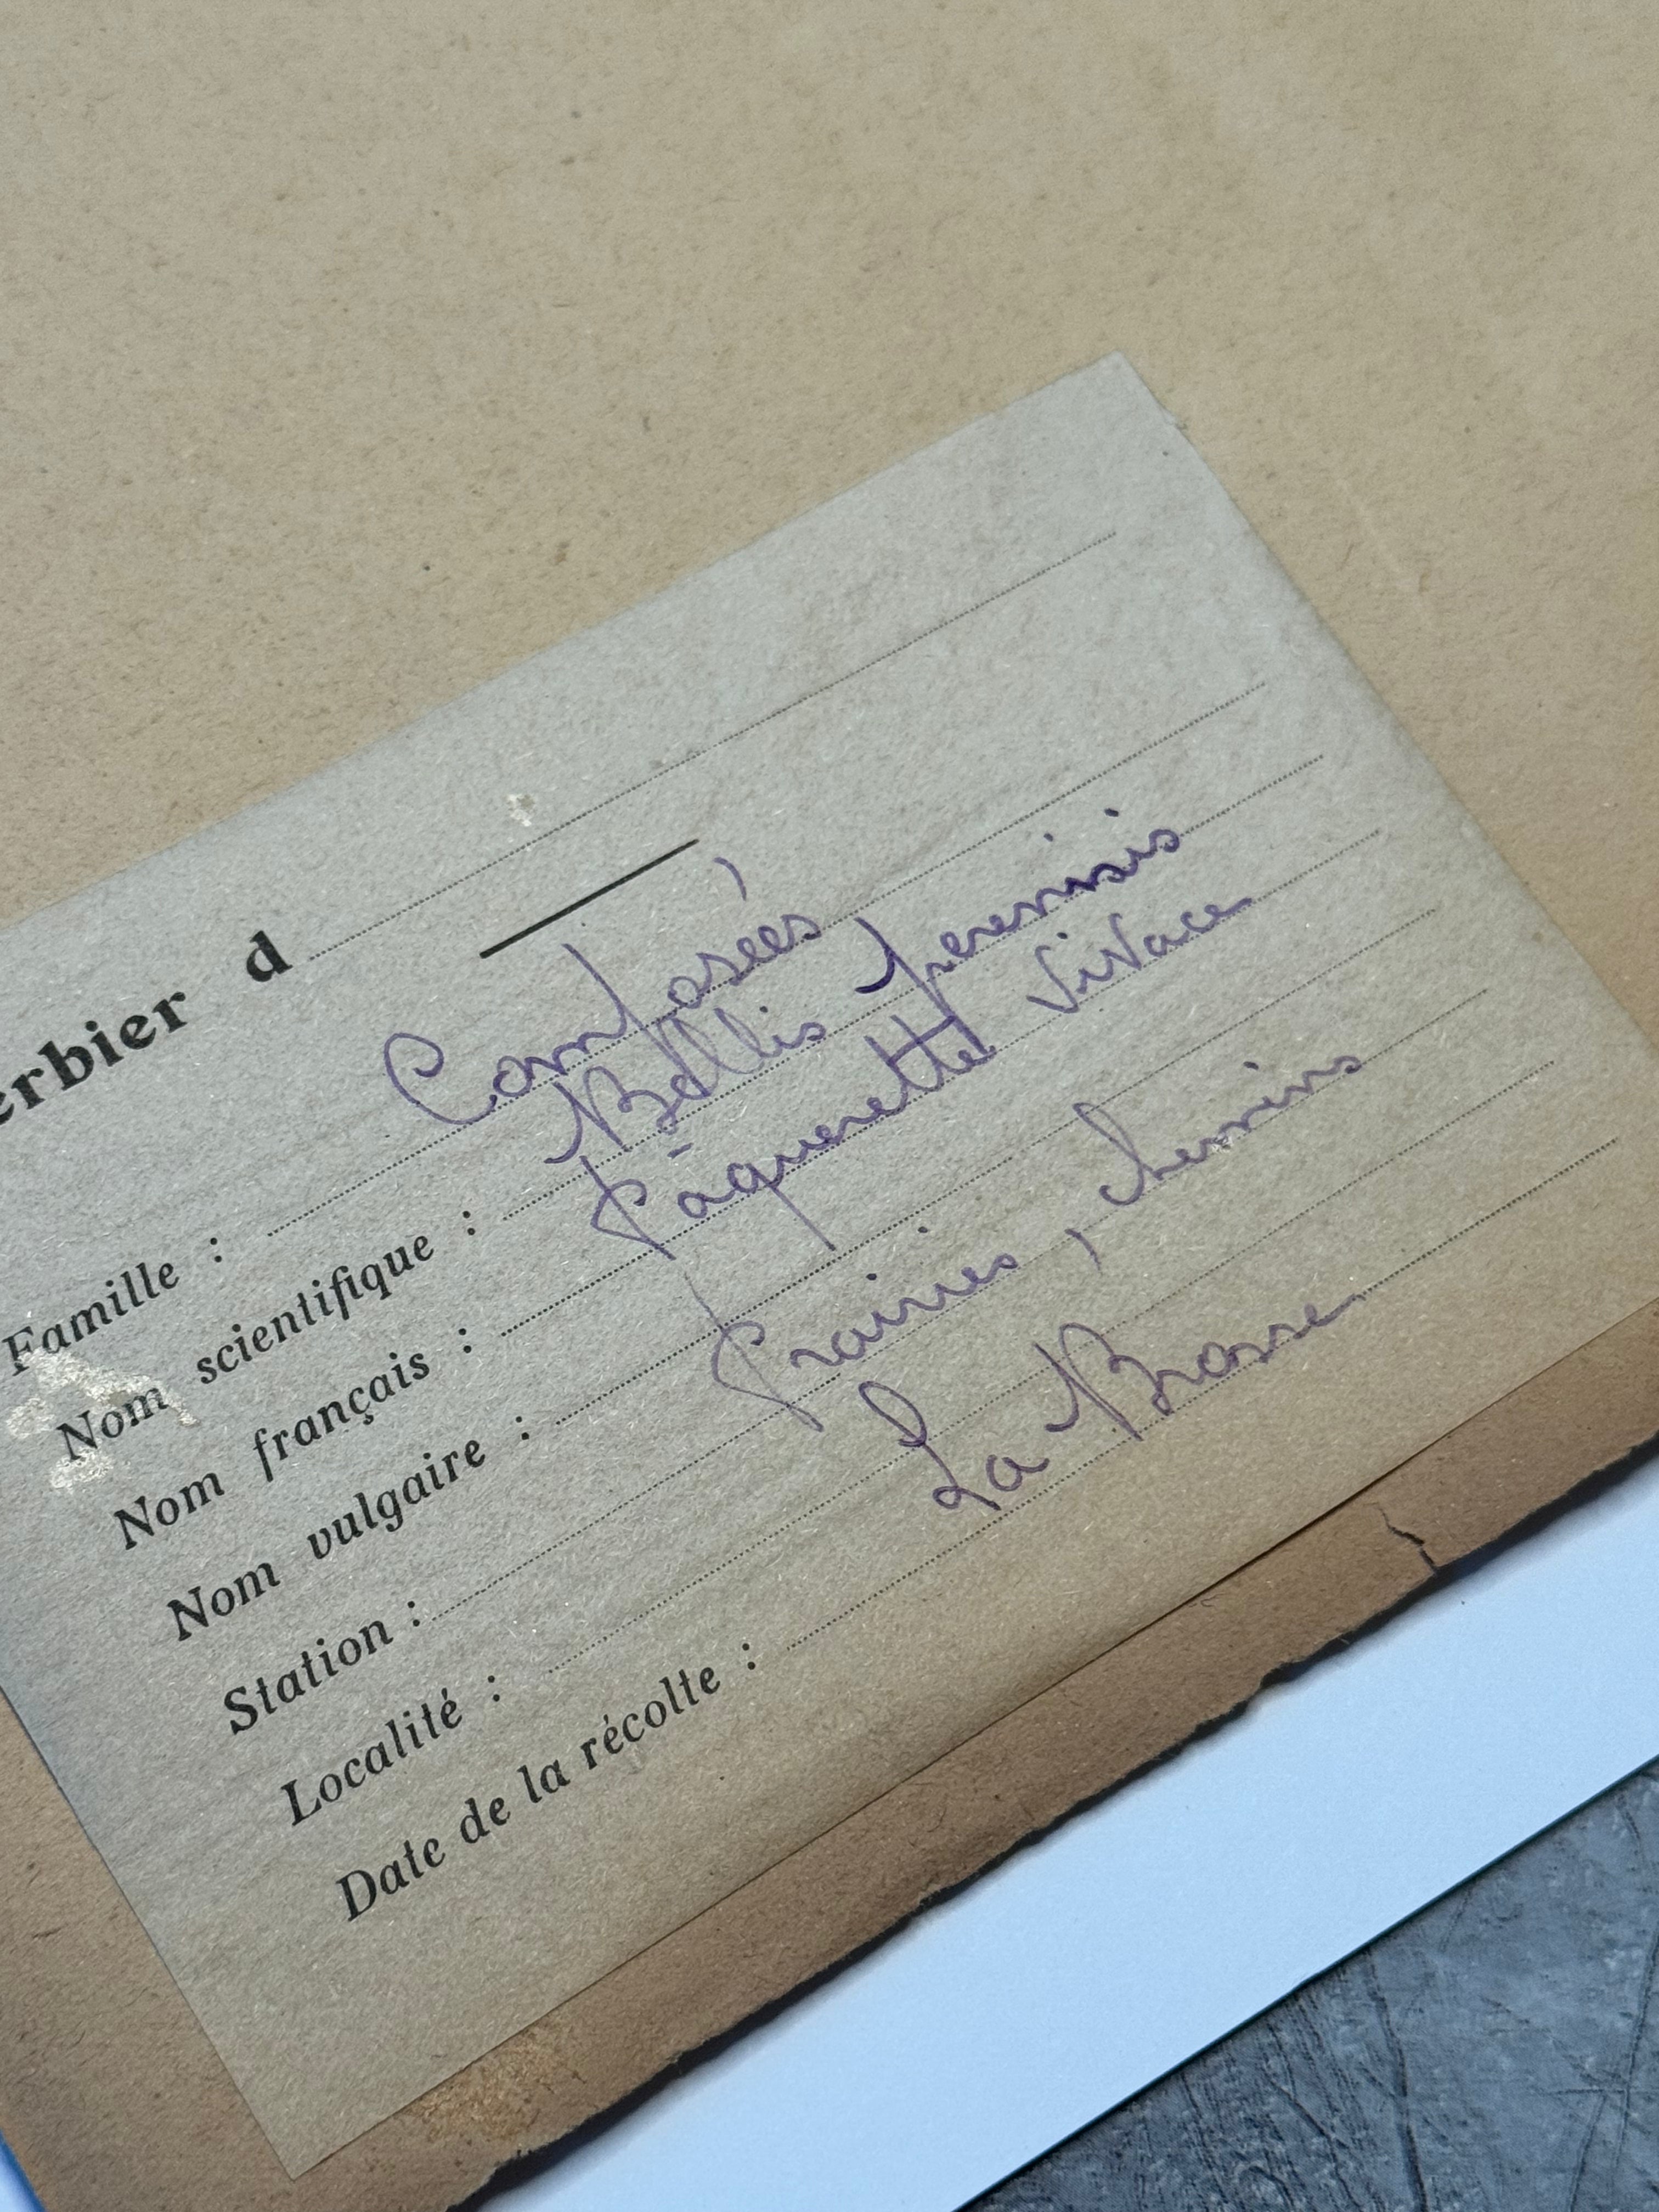 erbier d
Famille : Composées
Nom scientifique : Bellis perennis
Nom français : Pâquerette vivace
Nom vulgaire :
Station : Prairies, chemins
Localité : La Brosse
Date de la récolte :